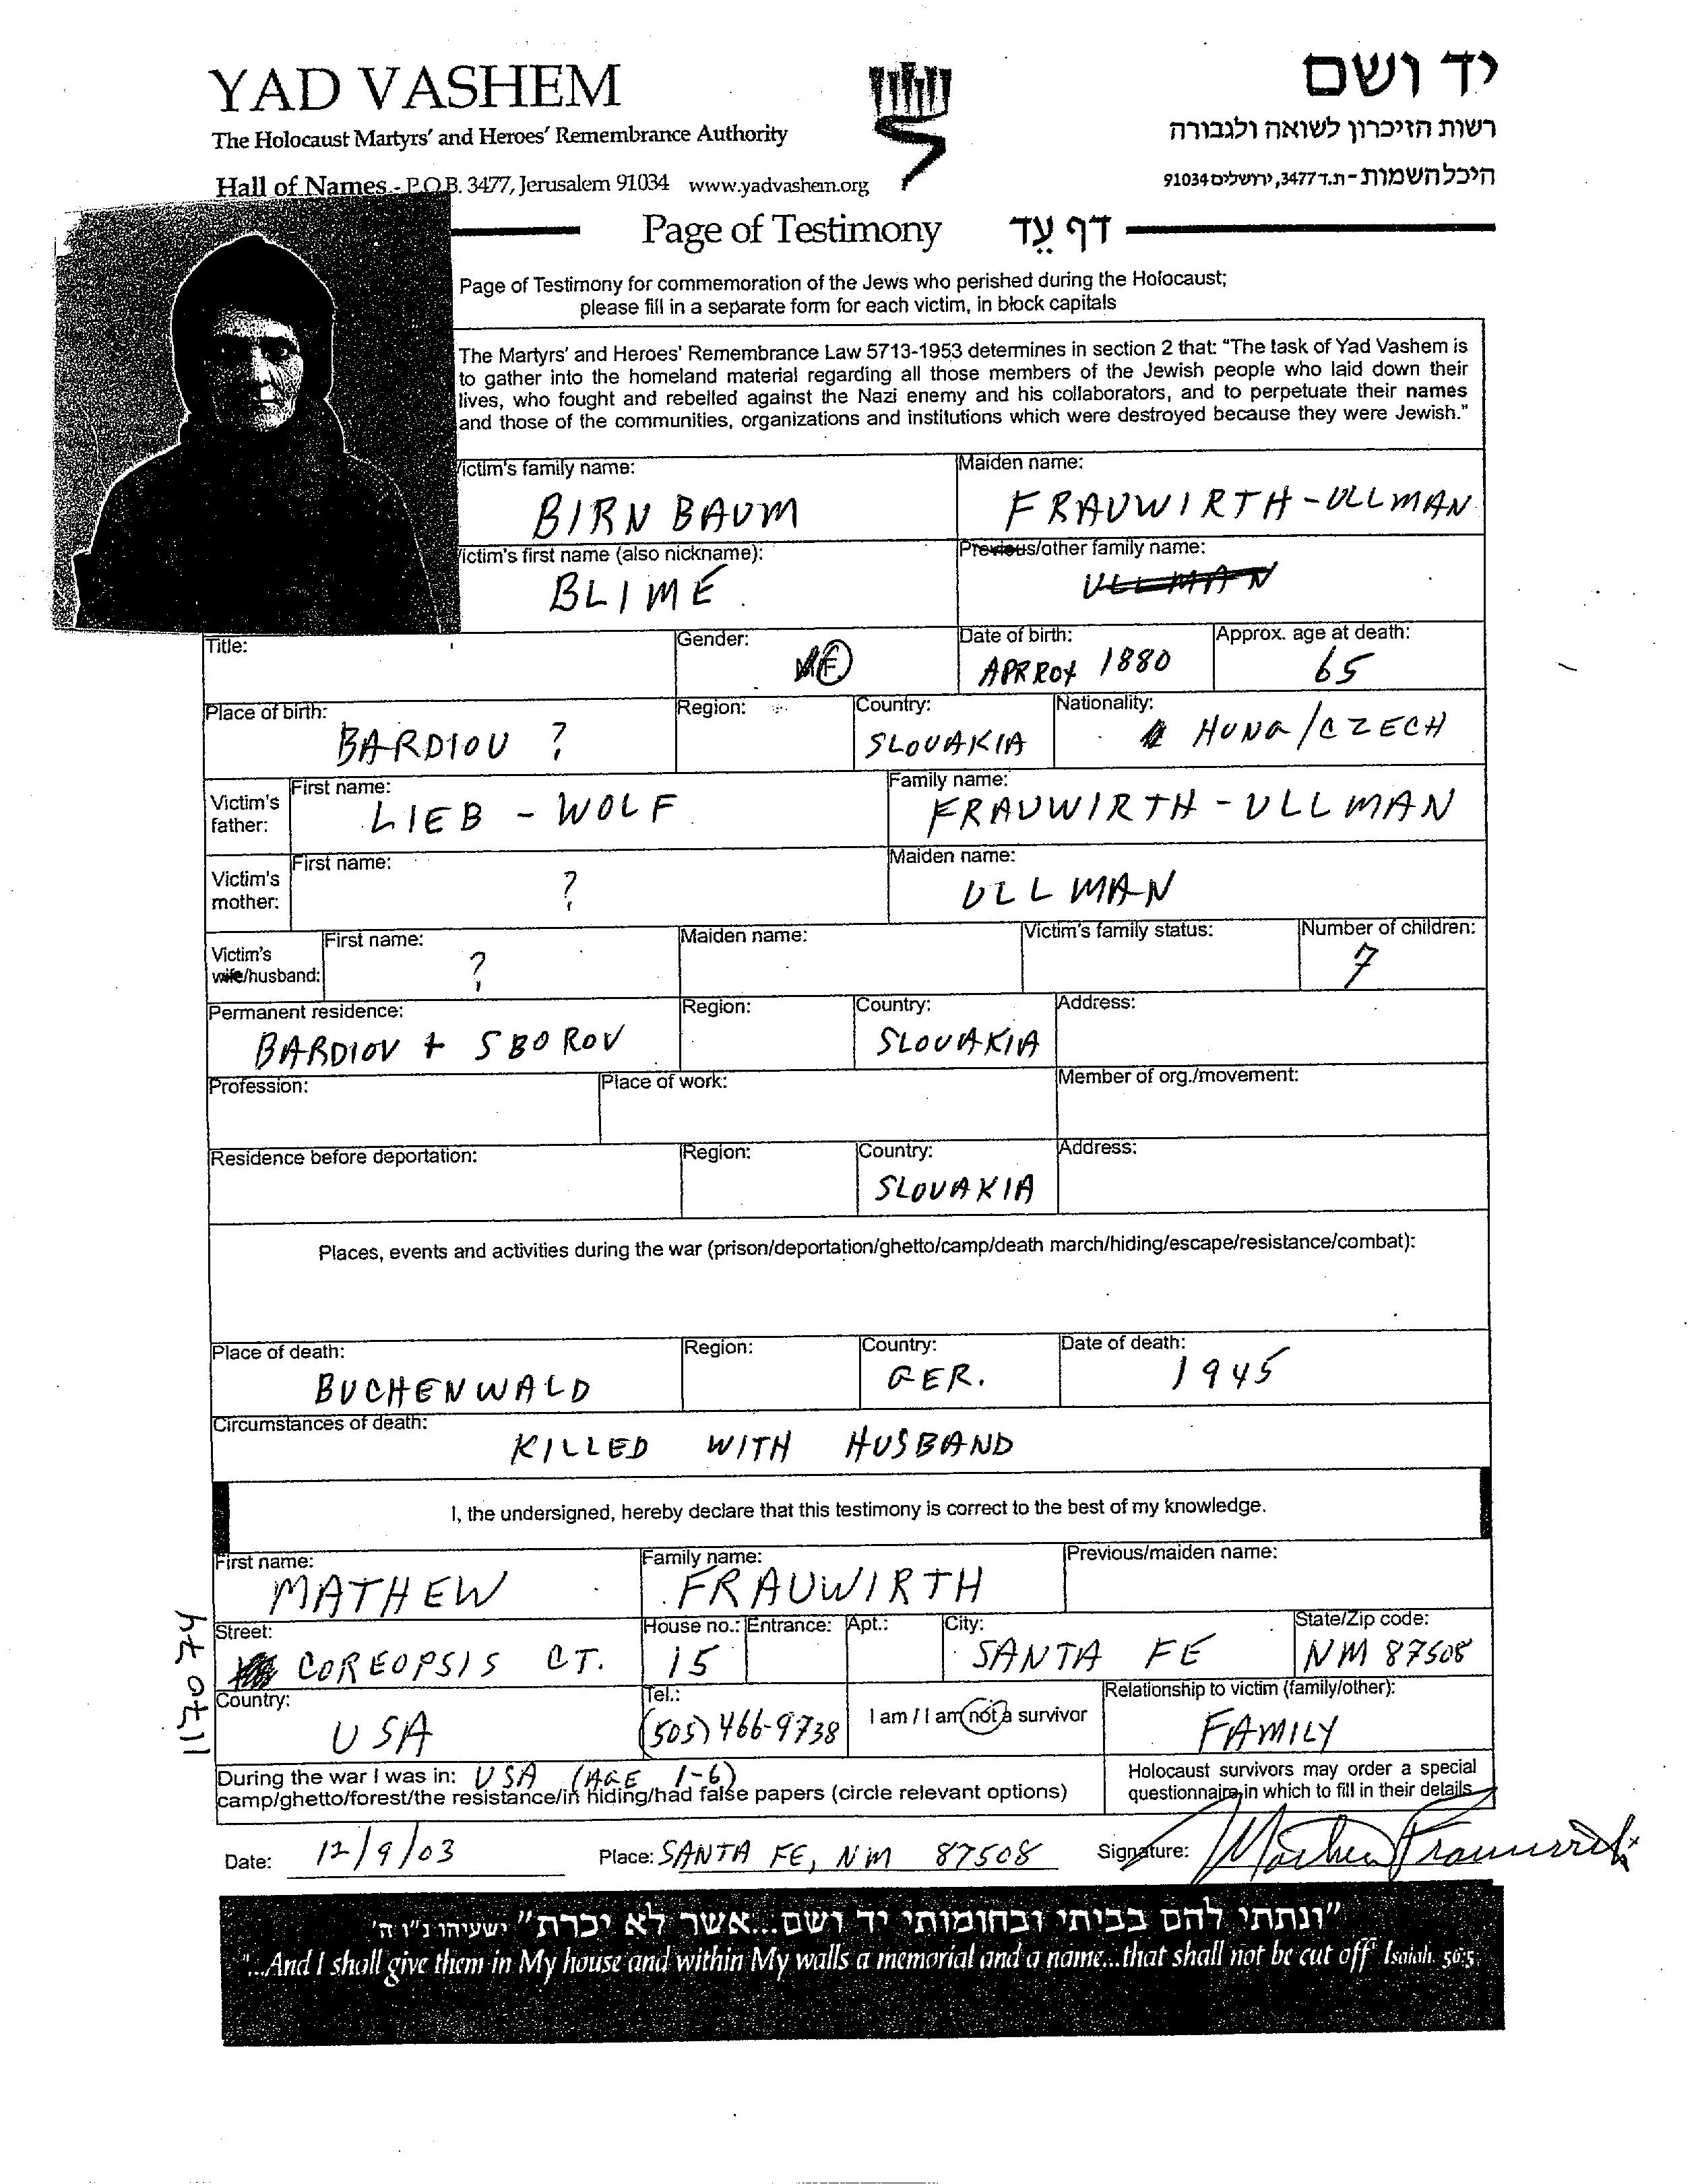 YAD VASHEM
The Holocaust Martyrs' and Heroes' Remembrance Authority
Hall of Names - P.O.B. 3477, Jerusalem 91034 www.yadvashem.org
יד ושם
רשות הזיכרון לשואה ולגבורה
היכל השמות - ת.ד 3477, ירושלים 91034
Page of Testimony דף עֵד
Page of Testimony for commemoration of the Jews who perished during the Holocaust;
please fill in a separate form for each victim, in block capitals
The Martyrs' and Heroes' Remembrance Law 5713-1953 determines in section 2 that: "The task of Yad Vashem is
to gather into the homeland material regarding all those members of the Jewish people who laid down their
lives, who fought and rebelled against the Nazi enemy and his collaborators, and to perpetuate their names
and those of the communities, organizations and institutions which were destroyed because they were Jewish."
Victim's family name: Maiden name:
BIRNBAUM FRAUWIRTH-ULLMAN
Victim's first name (also nickname): Previous/other family name:
BLIMÉ ULLMAN
Title: Gender: M F Date of birth: Approx. age at death:
APRROX 1880 65
Place of birth: Region: Country: Nationality:
BARDIOU ? SLOVAKIA HUNG/CZECH
Victim's father: First name: Family name:
LIEB - WOLF FRAUWIRTH - ULLMAN
Victim's mother: First name: Maiden name:
? ULLMAN
Victim's wife/husband: First name: Maiden name: Victim's family status: Number of children:
? 7
Permanent residence: Region: Country: Address:
BARDIOV + SBOROV SLOVAKIA
Profession: Place of work: Member of org./movement:
Residence before deportation: Region: Country: Address:
SLOVAKIA
Places, events and activities during the war (prison/deportation/ghetto/camp/death march/hiding/escape/resistance/combat):
Place of death: Region: Country: Date of death:
BUCHENWALD GER. 1945
Circumstances of death:
KILLED WITH HUSBAND
I, the undersigned, hereby declare that this testimony is correct to the best of my knowledge.
First name: Family name: Previous/maiden name:
MATHEW FRAUWIRTH
Street: House no.: Entrance: Apt.: City: State/Zip code:
COREOPSIS CT. 15 SANTA FE NM 87508
Country: Tel.: I am / I am not a survivor Relationship to victim (family/other):
USA (505) 466-9738 FAMILY
During the war I was in: USA (AGE 1-6)
camp/ghetto/forest/the resistance/in hiding/had false papers (circle relevant options)
Holocaust survivors may order a special
questionnaire in which to fill in their details
Date: 12/9/03 Place: SANTA FE, NM 87508 Signature: Mathew Frauwirth
117074
"ונתתי להם בביתי ובחומותי יד ושם...אשר לא יכרת" ישעיהו נ"ו ה'
"...And I shall give them in My house and within My walls a memorial and a name...that shall not be cut off" Isaiah 56:5